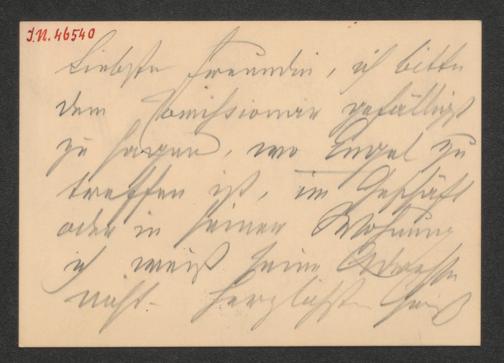 J.N. 46540
Liebste Freundin, ich bitte
dem Comissionär gefälligst
zu sagen, wo Engel zu
treffen ist, im Geschäft
oder in seiner Wohnung
ich weiß seine Adresse
nicht. Herzlichst